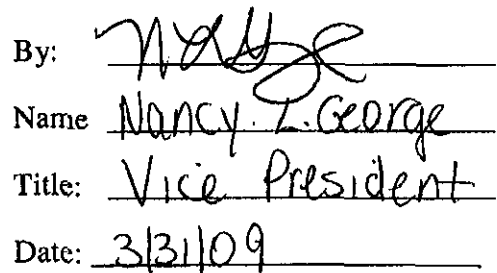 By:
Name Nancy. L. George
Title: Vice President
Date: 3/31/09